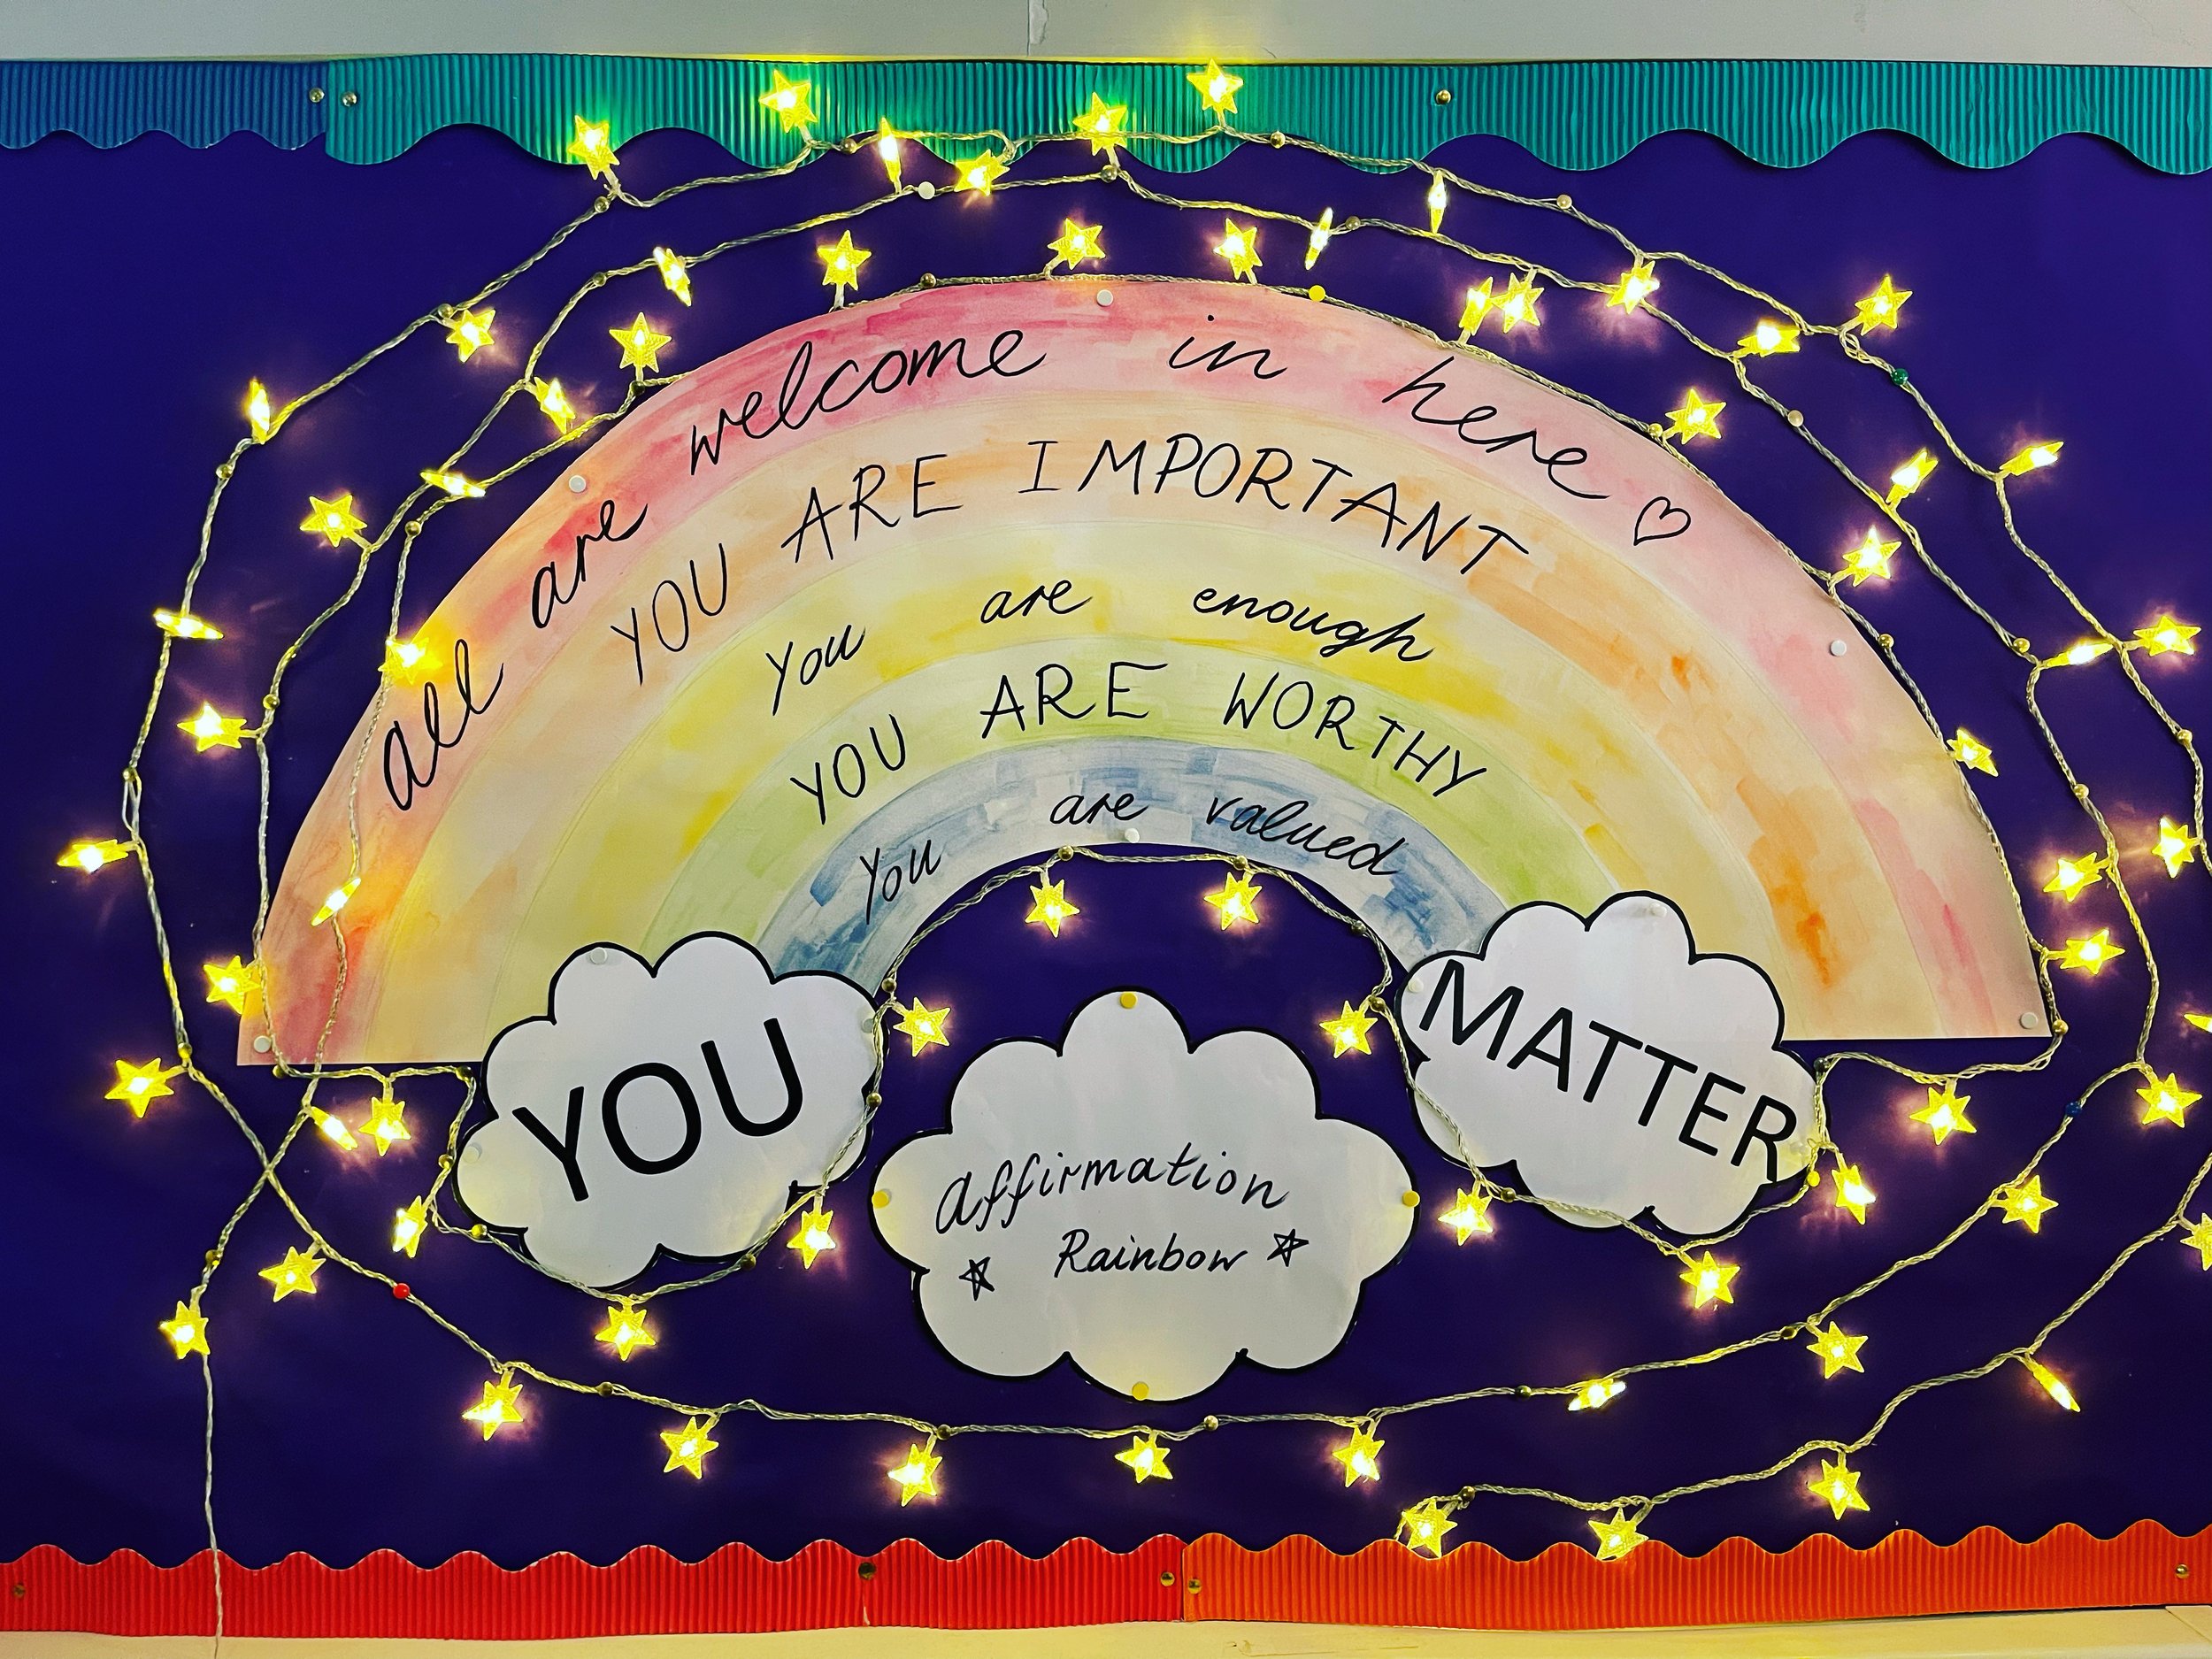 all are welcome in here
YOU ARE IMPORTANT
you are enough
YOU ARE WORTHY
you are valued
YOU
MATTER
affirmation
Rainbow